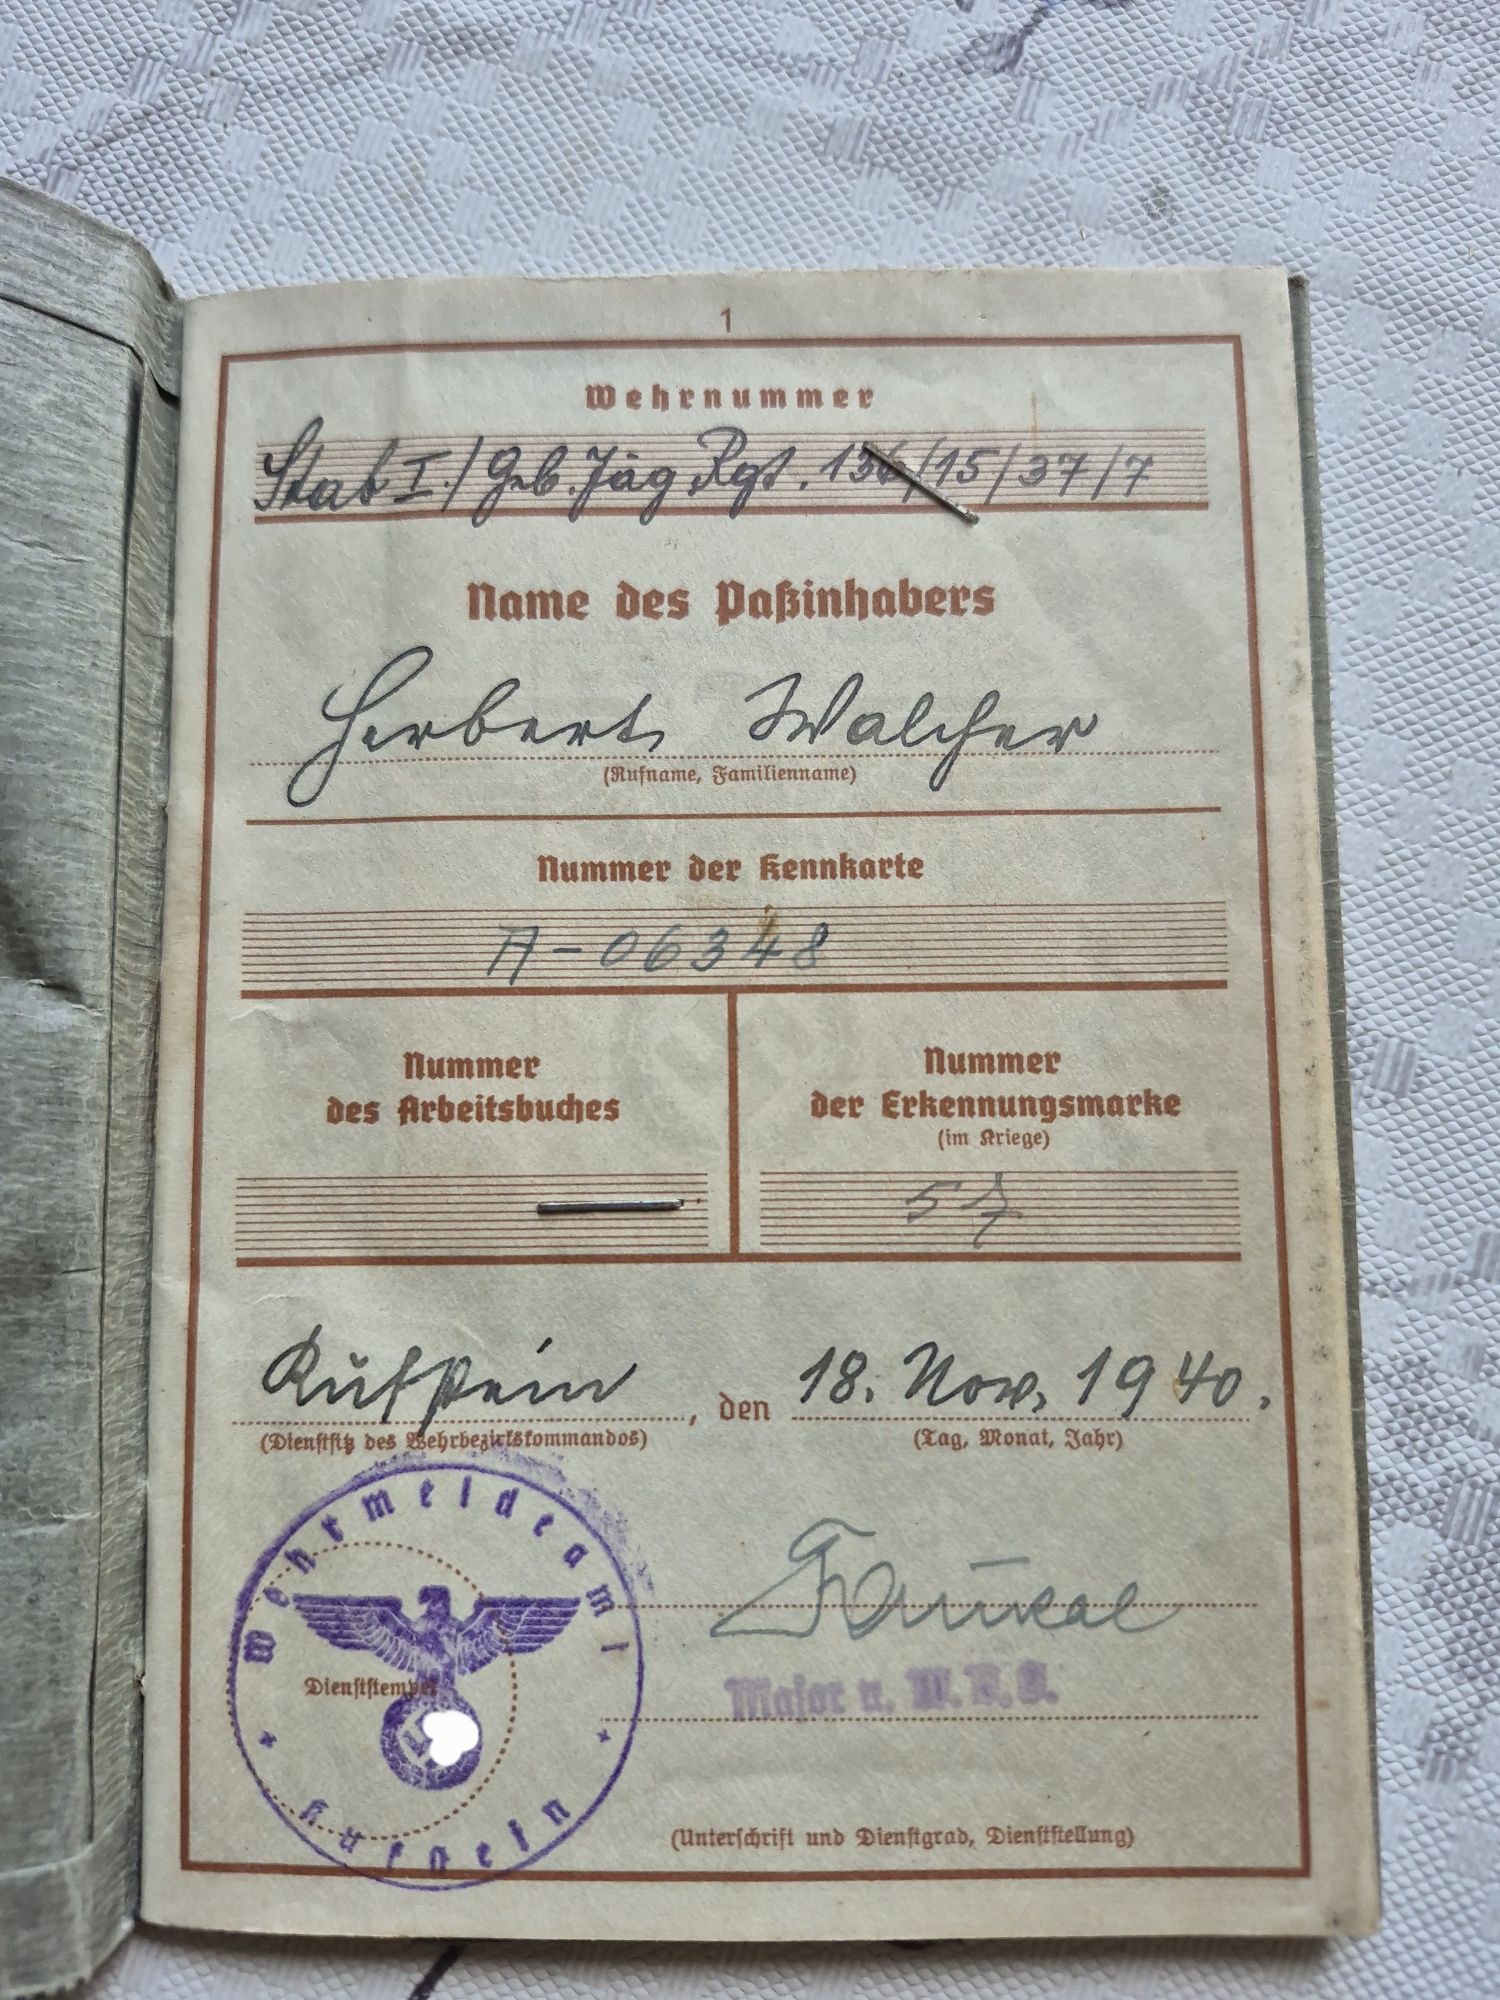 1
Wehrnummer
Stab I./Geb.Jäg Rgt. 136/15/37/7
Name des Paßinhabers
Herbert Walcher
(Rufname, Familienname)
Nummer der Kennkarte
A-06348
Nummer
des Arbeitsbuches
Nummer
der Erkennungsmarke
(im Kriege)
57
Kufstein, den 18. Nov. 1940.
(Dienstsitz des Wehrbezirkskommandos) (Tag, Monat, Jahr)
Wehrmeldeamt
Dienststempel
Major u. W.B.O.
Kufstein
(Unterschrift und Dienstgrad, Dienststellung)